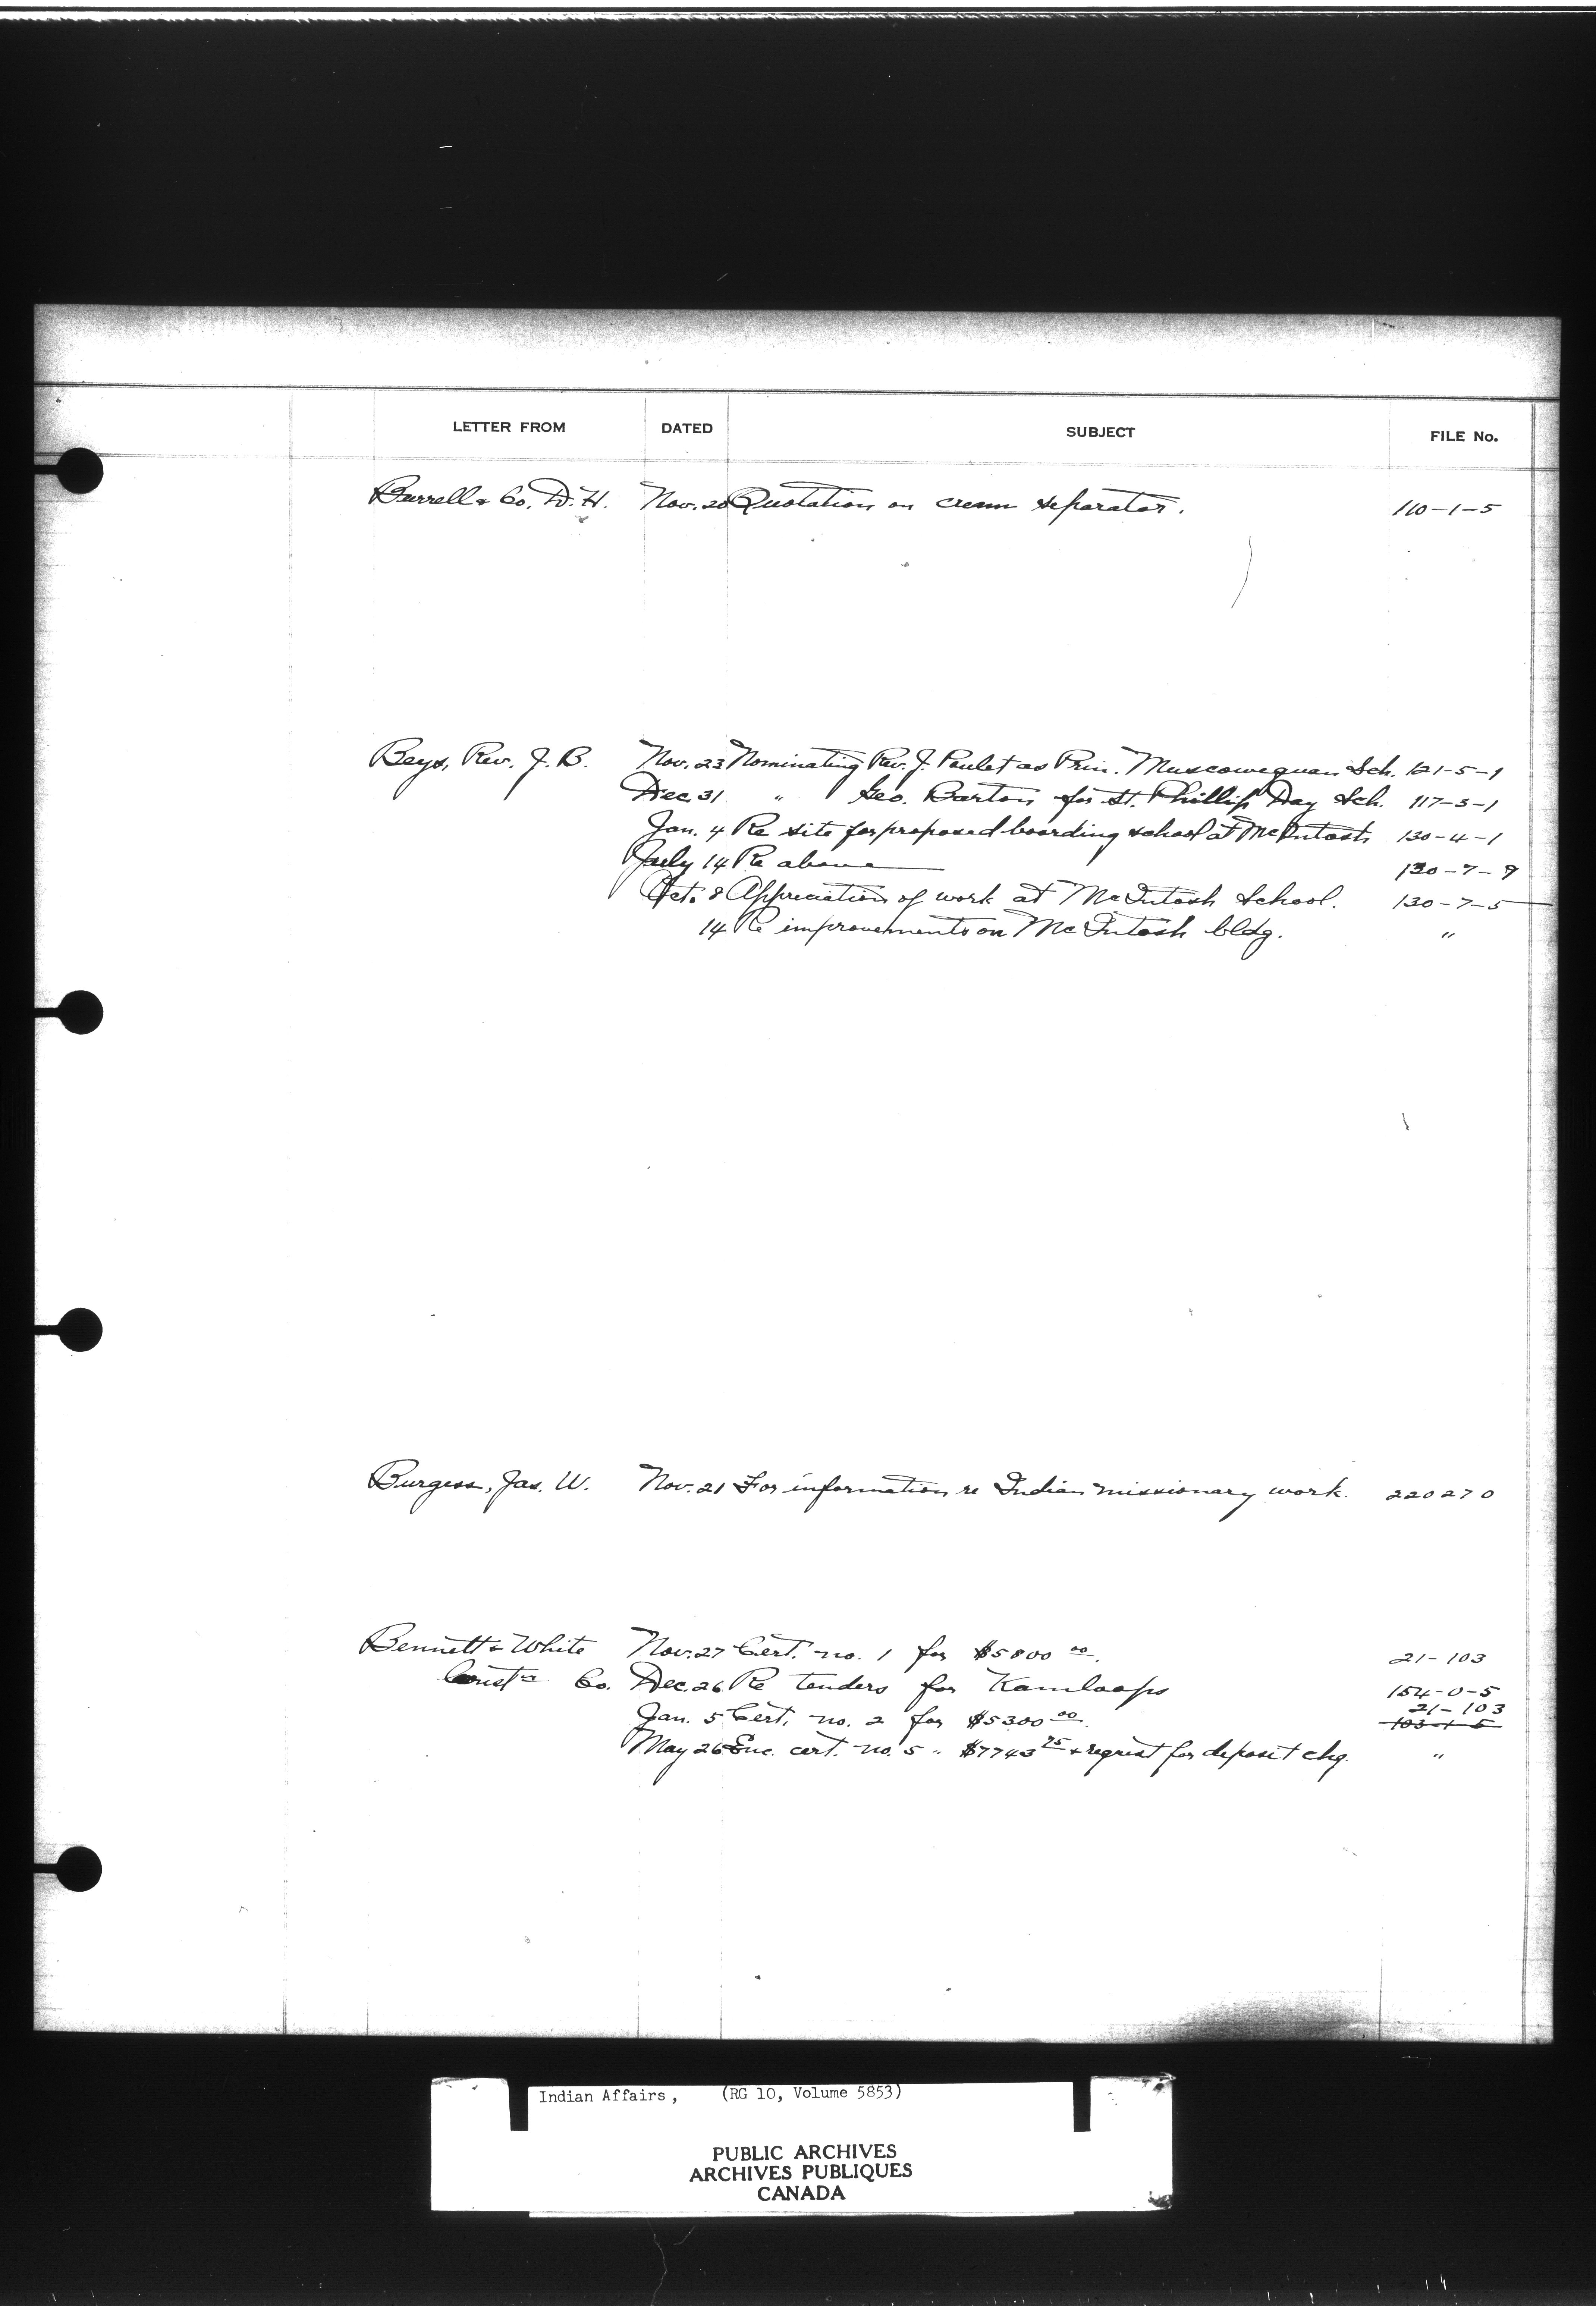 LETTER FROM DATED SUBJECT FILE No.
Burrell & Co. D. H. Nov. 20 Quotation on cream separator. 110-1-5
Beys, Rev. J. B. Nov. 23 Nominating Rev. J. Poulet as Prin. Muscowequan Sch. 121-5-1
Dec. 31 " Geo. Barton for St. Phillip Day Sch. 117-3-1
Jan. 4 Re site for proposed boarding school at McIntosh 130-4-1
July 14 Re above 130-7-9
Oct. 8 Appreciation of work at McIntosh School. 130-7-5
14 Re improvements on McIntosh bldg. "
Burgess, Jas. W. Nov. 21 For information re Indian missionary work. 220270
Bennett & White Nov. 27 Cert. no. 1 for $5800 00. 21-103
Const'n Co. Dec. 26 Re tenders for Kamloops 154-0-5
21-103
Jan. 5 Cert. no. 2 for $5300 00. 103-1-5
May 26 Enc. cert. no. 5 " $7743 75 & request for deposit chq. "
Indian Affairs, (RG 10, Volume 5853)
PUBLIC ARCHIVES
ARCHIVES PUBLIQUES
CANADA